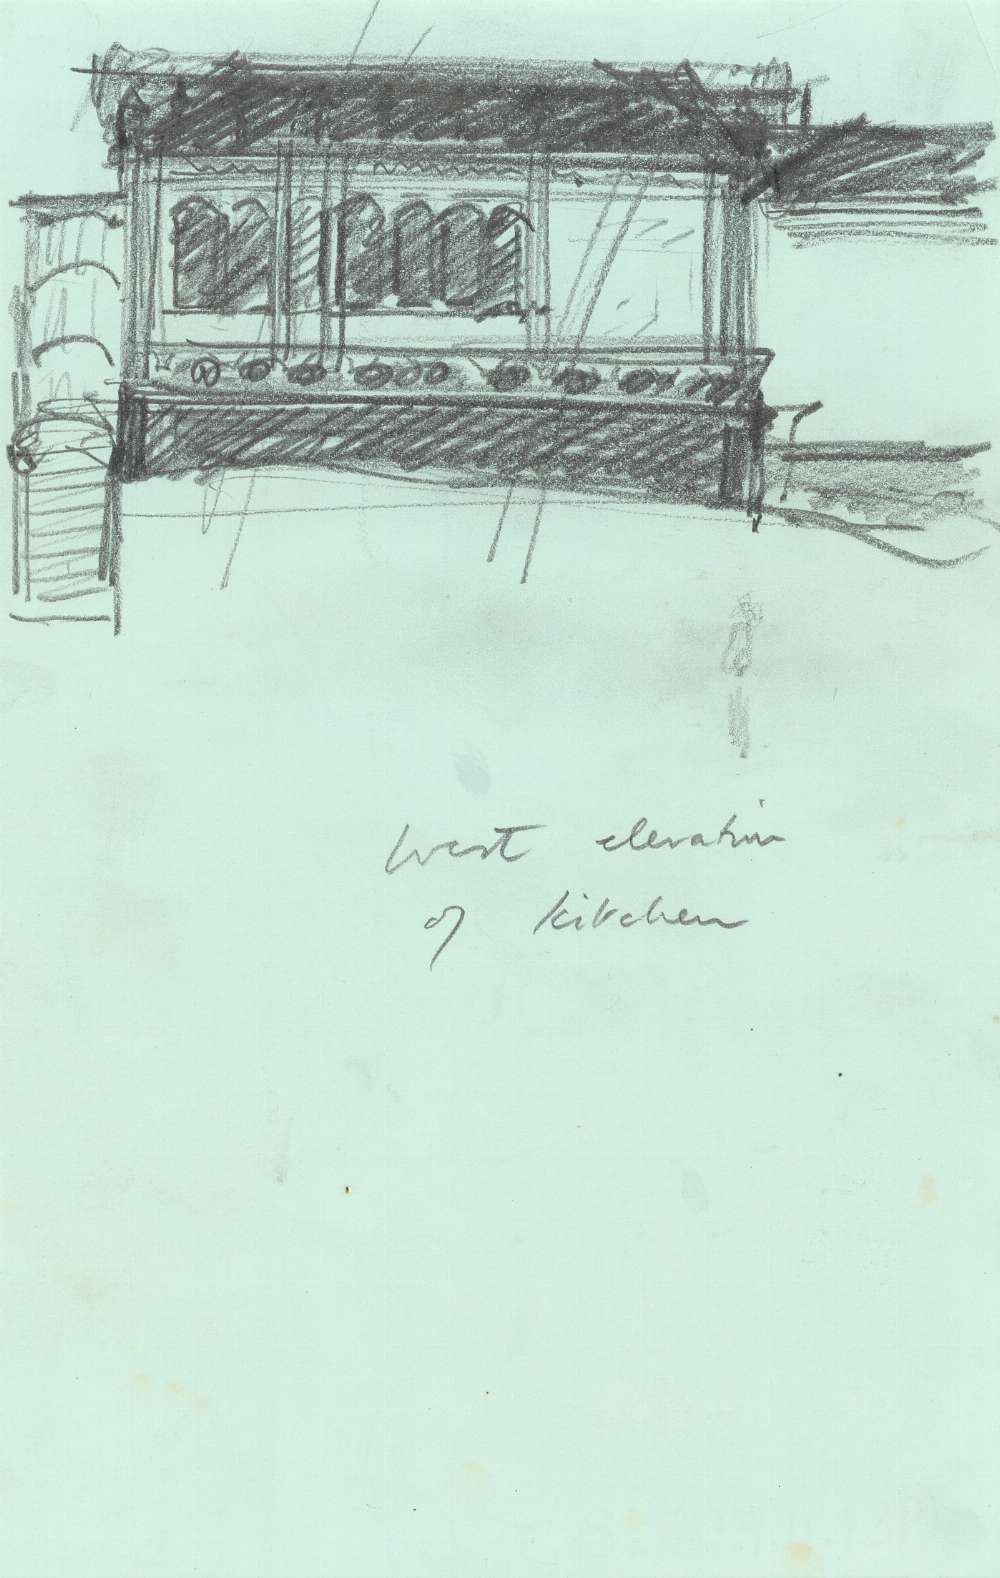 West elevation
of kitchen